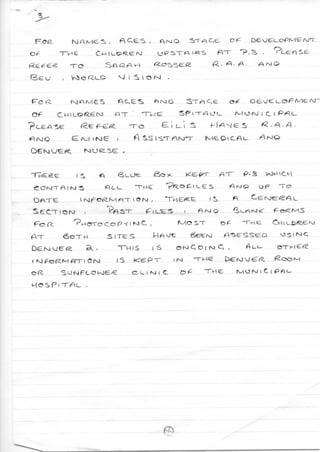 3
FOR NAMES, AGES, AND STAGE OF DEVELOPMENT
OF THE CHILDREN UPSTAIRS AT P.8. PLEASE
REFER TO SARAH ROSSER R.A.A AND
BEV, WORLD VISION.
FOR NAMES AGES AND STAGE OF DEVELOPMENT
OF CHILDREN AT THE SPITAUL MUNICIPAL
PLEASE REFER TO EILIS HAYES R.A.A
AND , ASSISTANT MEDICAL AND
DENVER NURSE.
THERE IS A BLUE BOX KEPT AT P.8 WHICH
CONTAINS ALL THE PROFILES AND UP TO
DATE INFORMATION, THERE IS A GENERAL
SECTION, PAST FILES, AND BLANK FORMS
FOR PHOTOCOPYING, MOST OF THE CHILDREN
AT BOTH SITES HAVE BEEN ASESSED USING
DENVER 2. THIS IS ONGOING. ALL OTHER
INFORMATION IS KEPT IN THE DENVER ROOM
OR SUNFLOWER CLINIC OF THE MUNICIPAL
HOSPITAL.